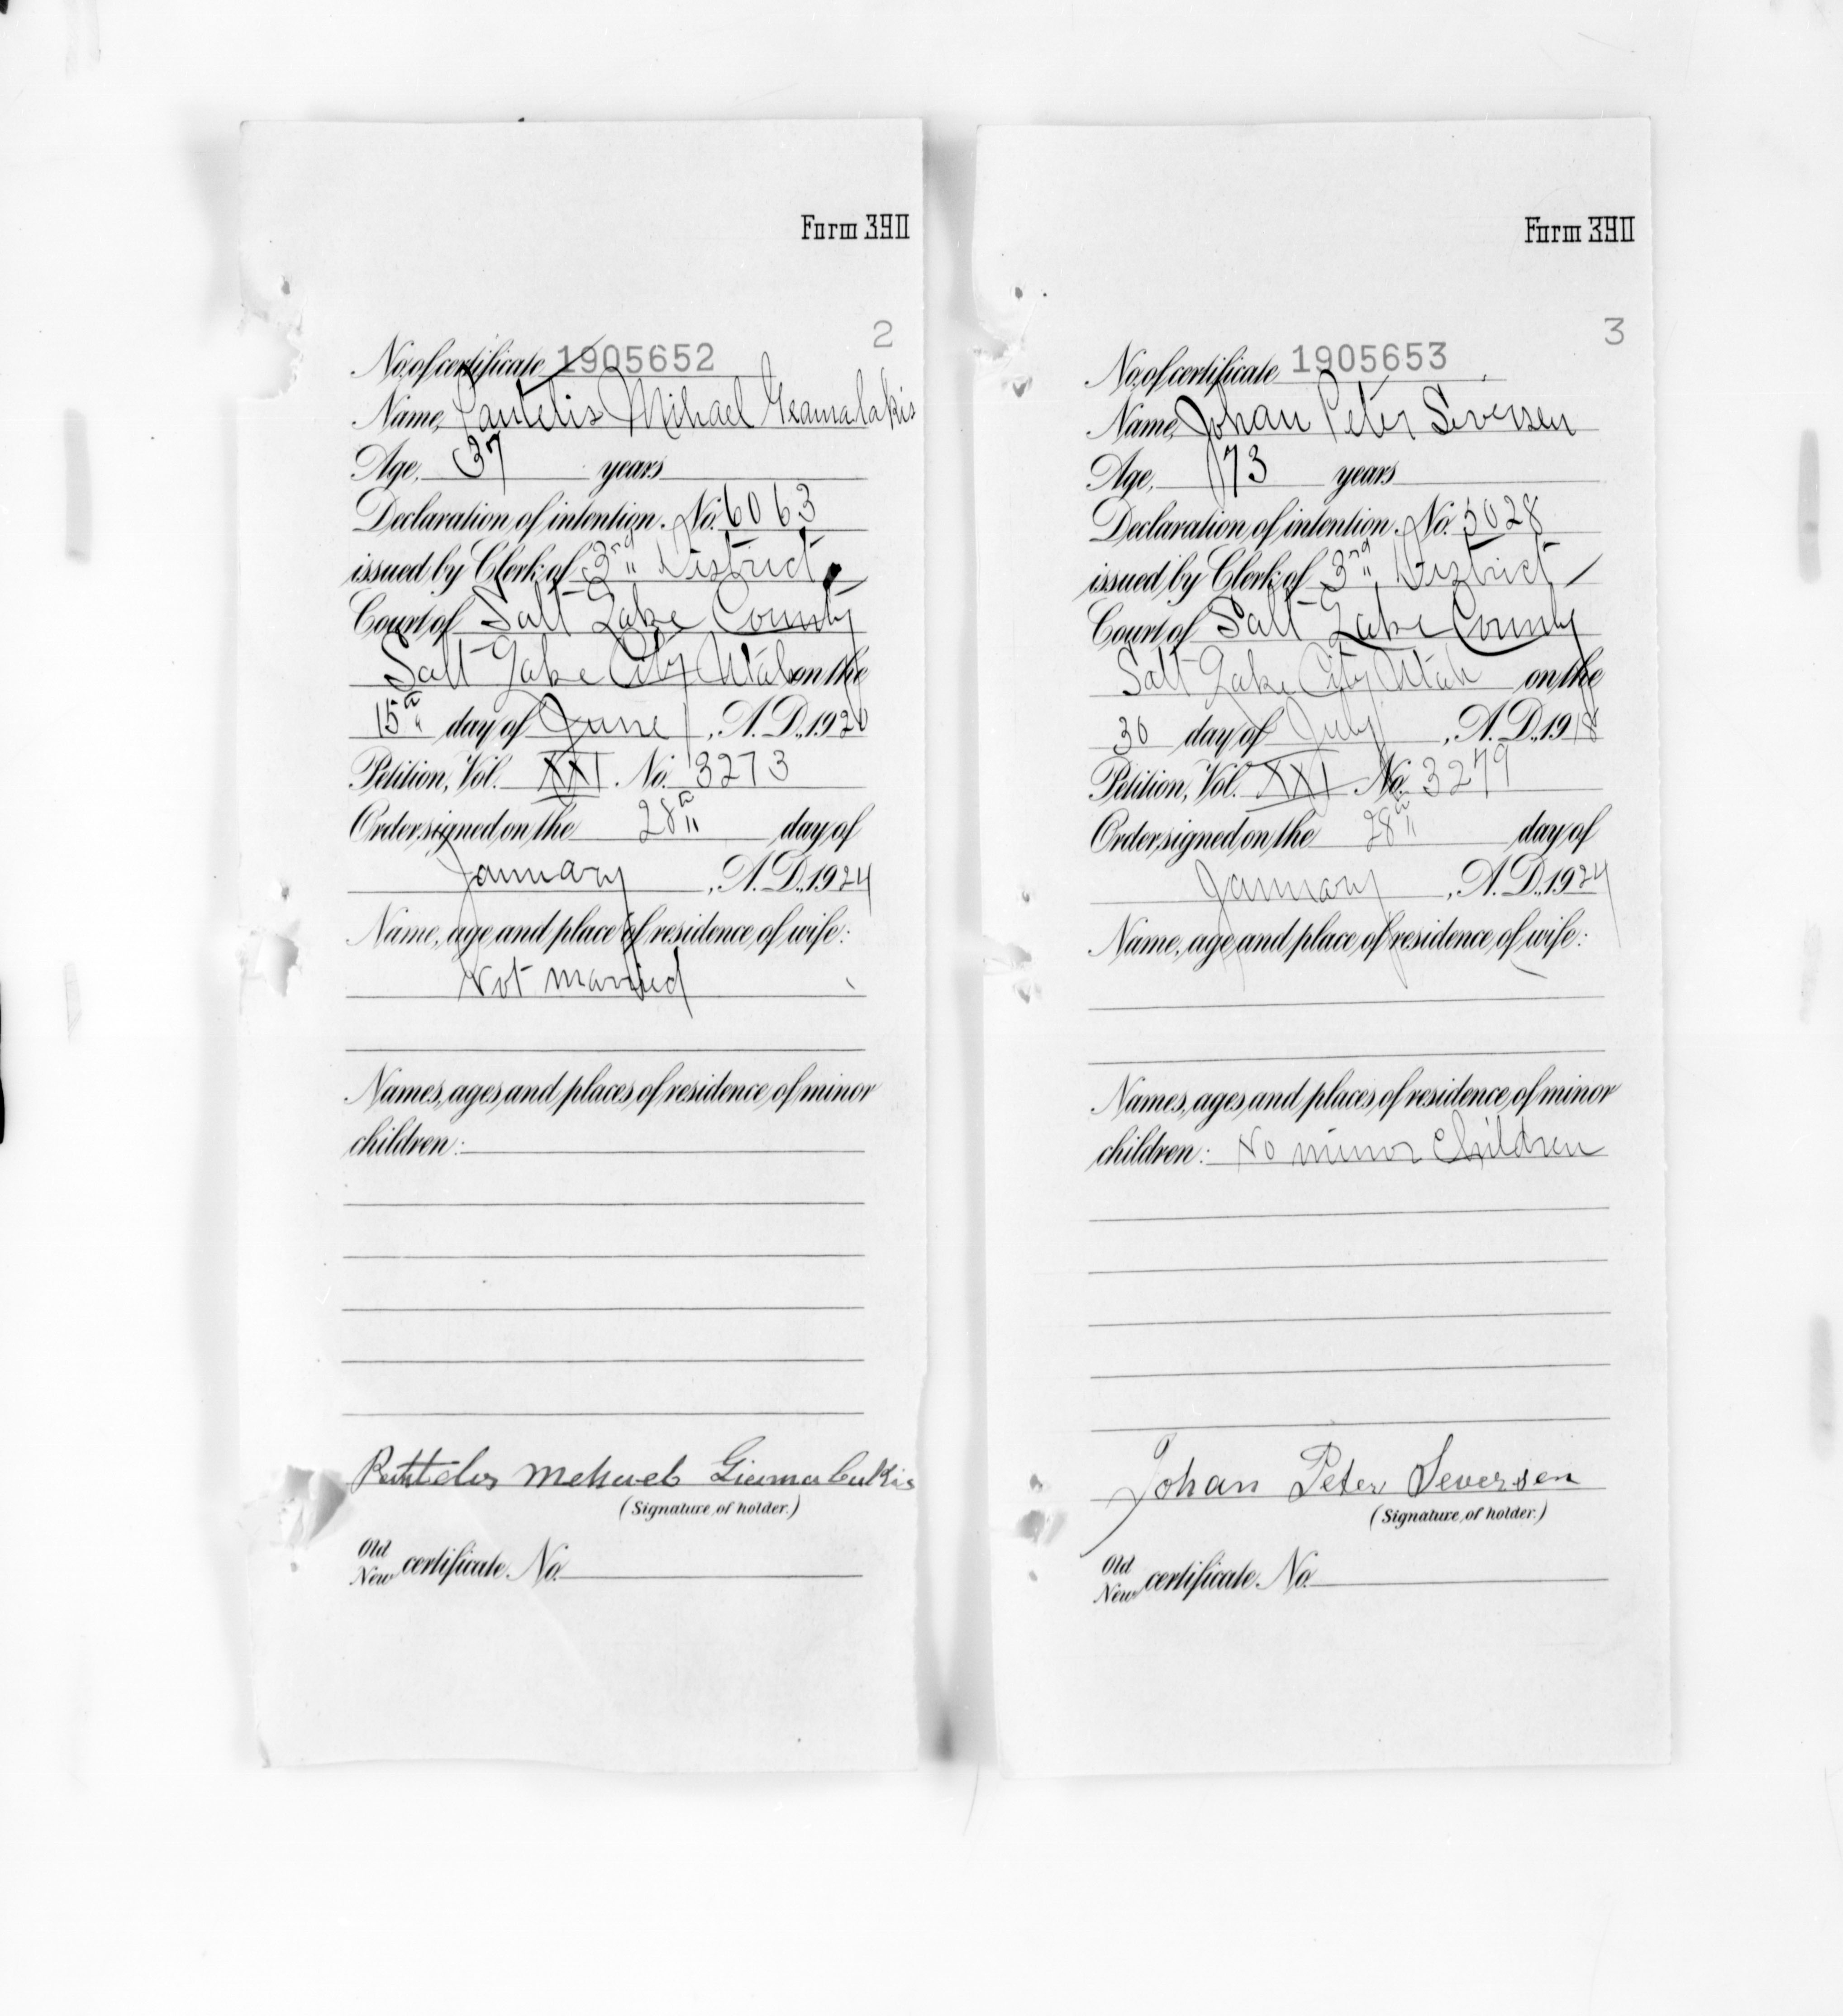 Form 390
2
No. of certificate 1905652
Name, Pantelis Mihael Geamalakis
Age, 37 years
Declaration of intention. No. 6063
issued by Clerk of 3rd District
Court of Salt Lake County
Salt Lake City Utah on the
15th day of June, A. D., 1920
Petition, Vol. XXI No. 3273
Order signed on the 28th day of
January, A. D., 1924
Name, age and place of residence of wife:
Not married
Names, ages and places of residence of minor
children:
Giamalakis
(Signature of holder.)
Old
New certificate No.
Form 390
3
No. of certificate 1905653
Name, Johan Peter Seversen
Age, 73 years
Declaration of intention. No. 5028
issued by Clerk of 3rd District
Court of Salt Lake County
Salt Lake City Utah on the
30 day of July, A. D., 1918
Petition, Vol. XXI No. 3279
Order signed on the 28th day of
January, A. D., 1924
Name, age and place of residence of wife:
Names, ages and places of residence of minor
children: No minor Children
Johan Peter Seversen
(Signature of holder.)
Old
New certificate No.